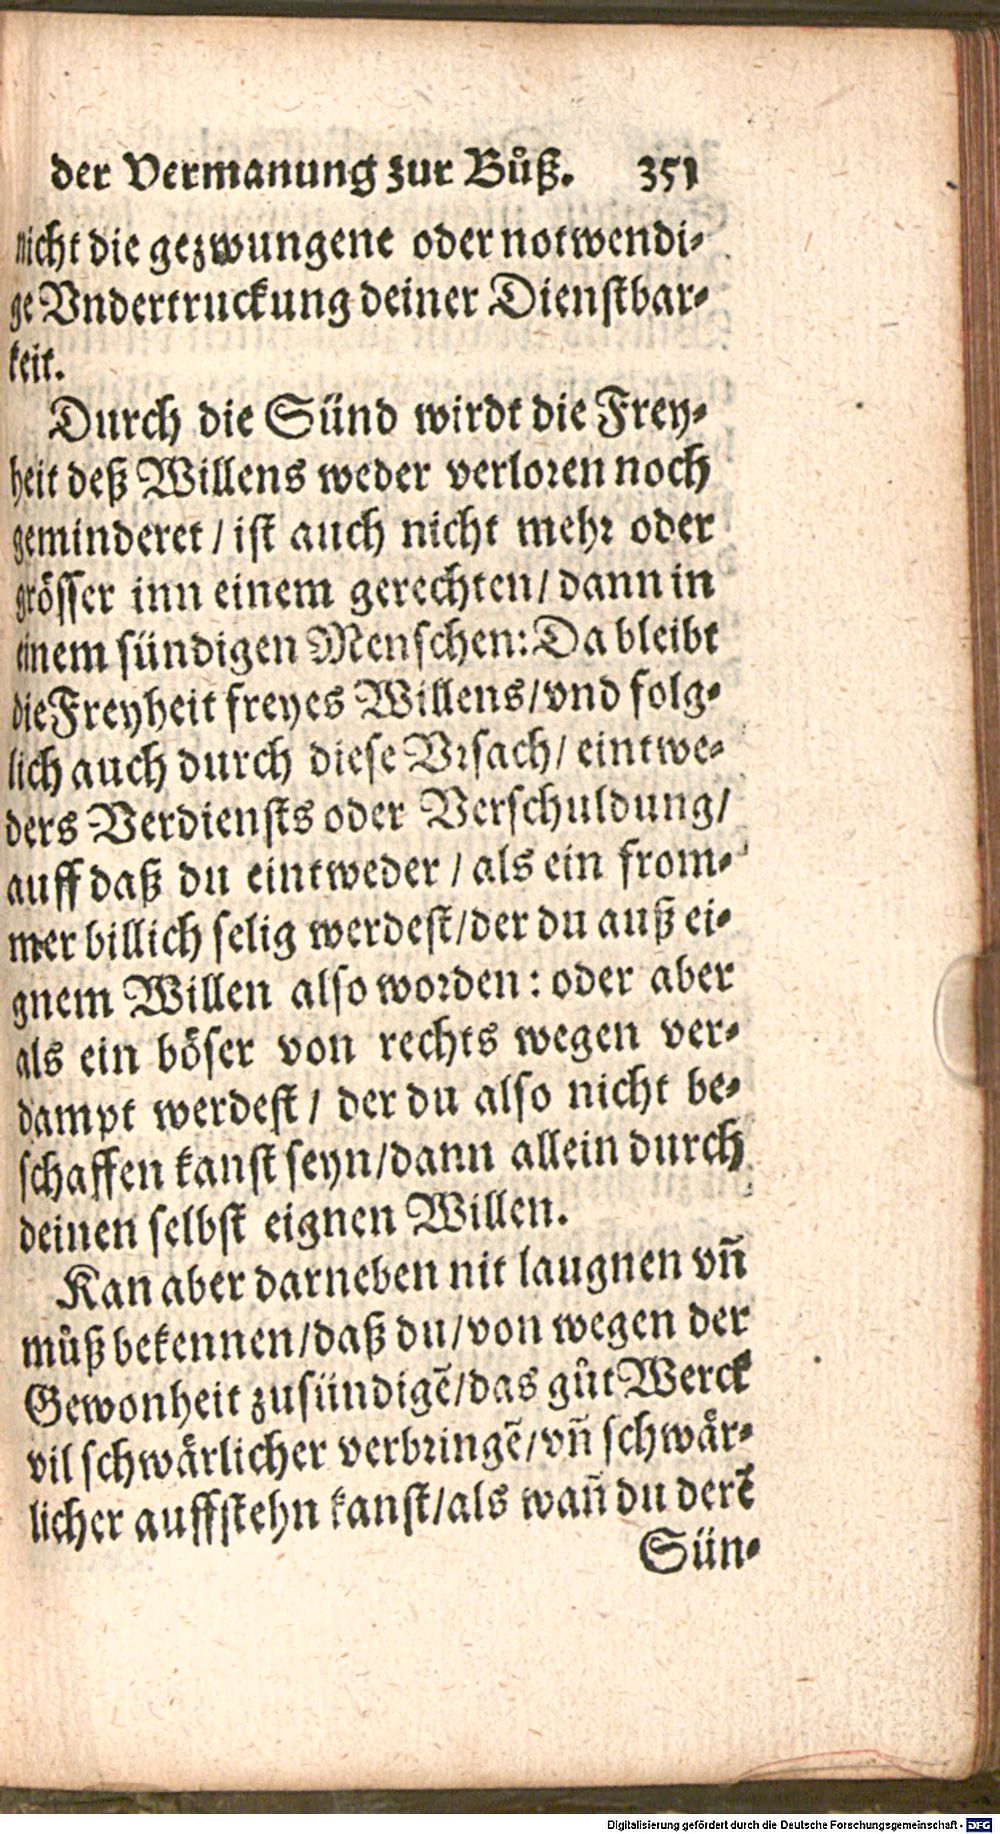 der Vermanung zur Bůß. 351
nicht die gezwungene oder notwendi-
ge Vndertruckung deiner Dienstbar-
keit.
Durch die Sünd wirdt die Frey-
heit deß Willens weder verloren noch
geminderet / ist auch nicht mehr oder
grösser inn einem gerechten / dann in
einem sündigen Menschen: Da bleibt
die Freyheit freyes Willens / vnd folg-
lich auch durch diese Vrsach / eintwe-
ders Verdiensts oder Verschuldung /
auff daß du eintweder / als ein from-
mer billich selig werdest / der du auß ei-
gnem Willen also worden: oder aber
als ein böser von rechts wegen ver-
dampt werdest / der du also nicht be-
schaffen kanst seyn / dann allein durch
deinen selbst eignen Willen.
Kan aber darneben nit laugnen vñ
můß bekennen / daß du / von wegen der
Gewonheit zusündigẽ / das gůt Werck
vil schwårlicher verbringẽ / vñ schwår-
licher auffstehn kanst / als wañ du derẽ
Sün-
Digitalisierung gefördert durch die Deutsche Forschungsgemeinschaft - DFG